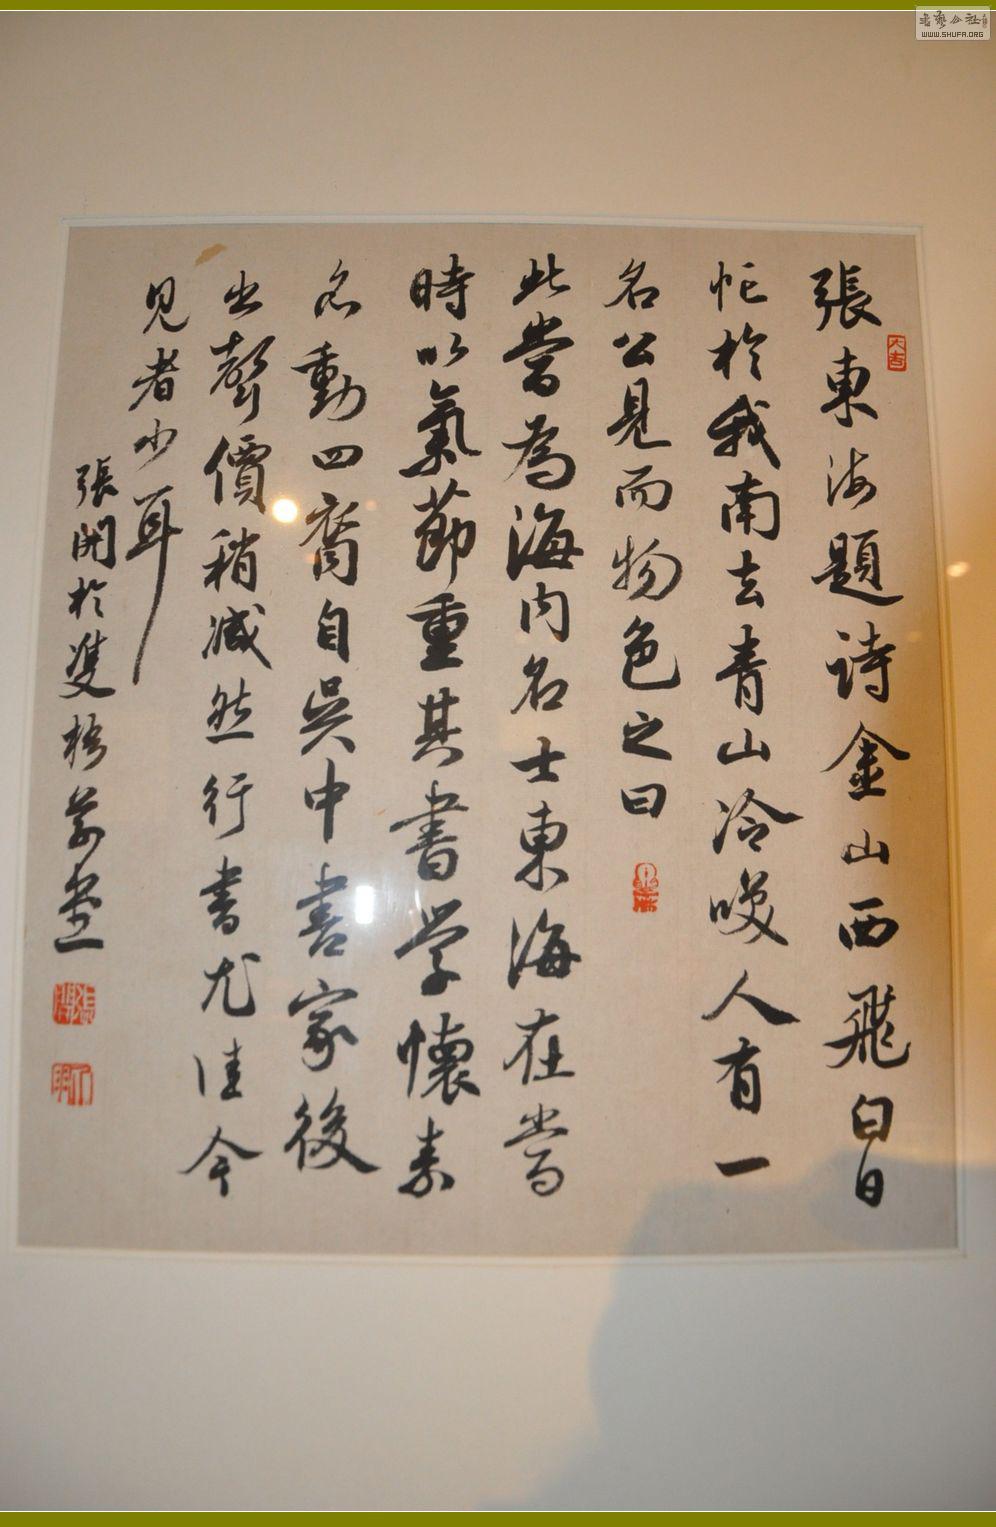 張東海題詩金山西飛白日
忙於我南去青山冷唉人有一
名公見而物色之曰
此當為海內名士東海在當
時以氣節重其書學懷素
名動四裔自吳中書家後
出聲價稍減然行書尤佳今
見者少耳
張開於雙梧草堂
大吉
WWW.SHUFA.ORG